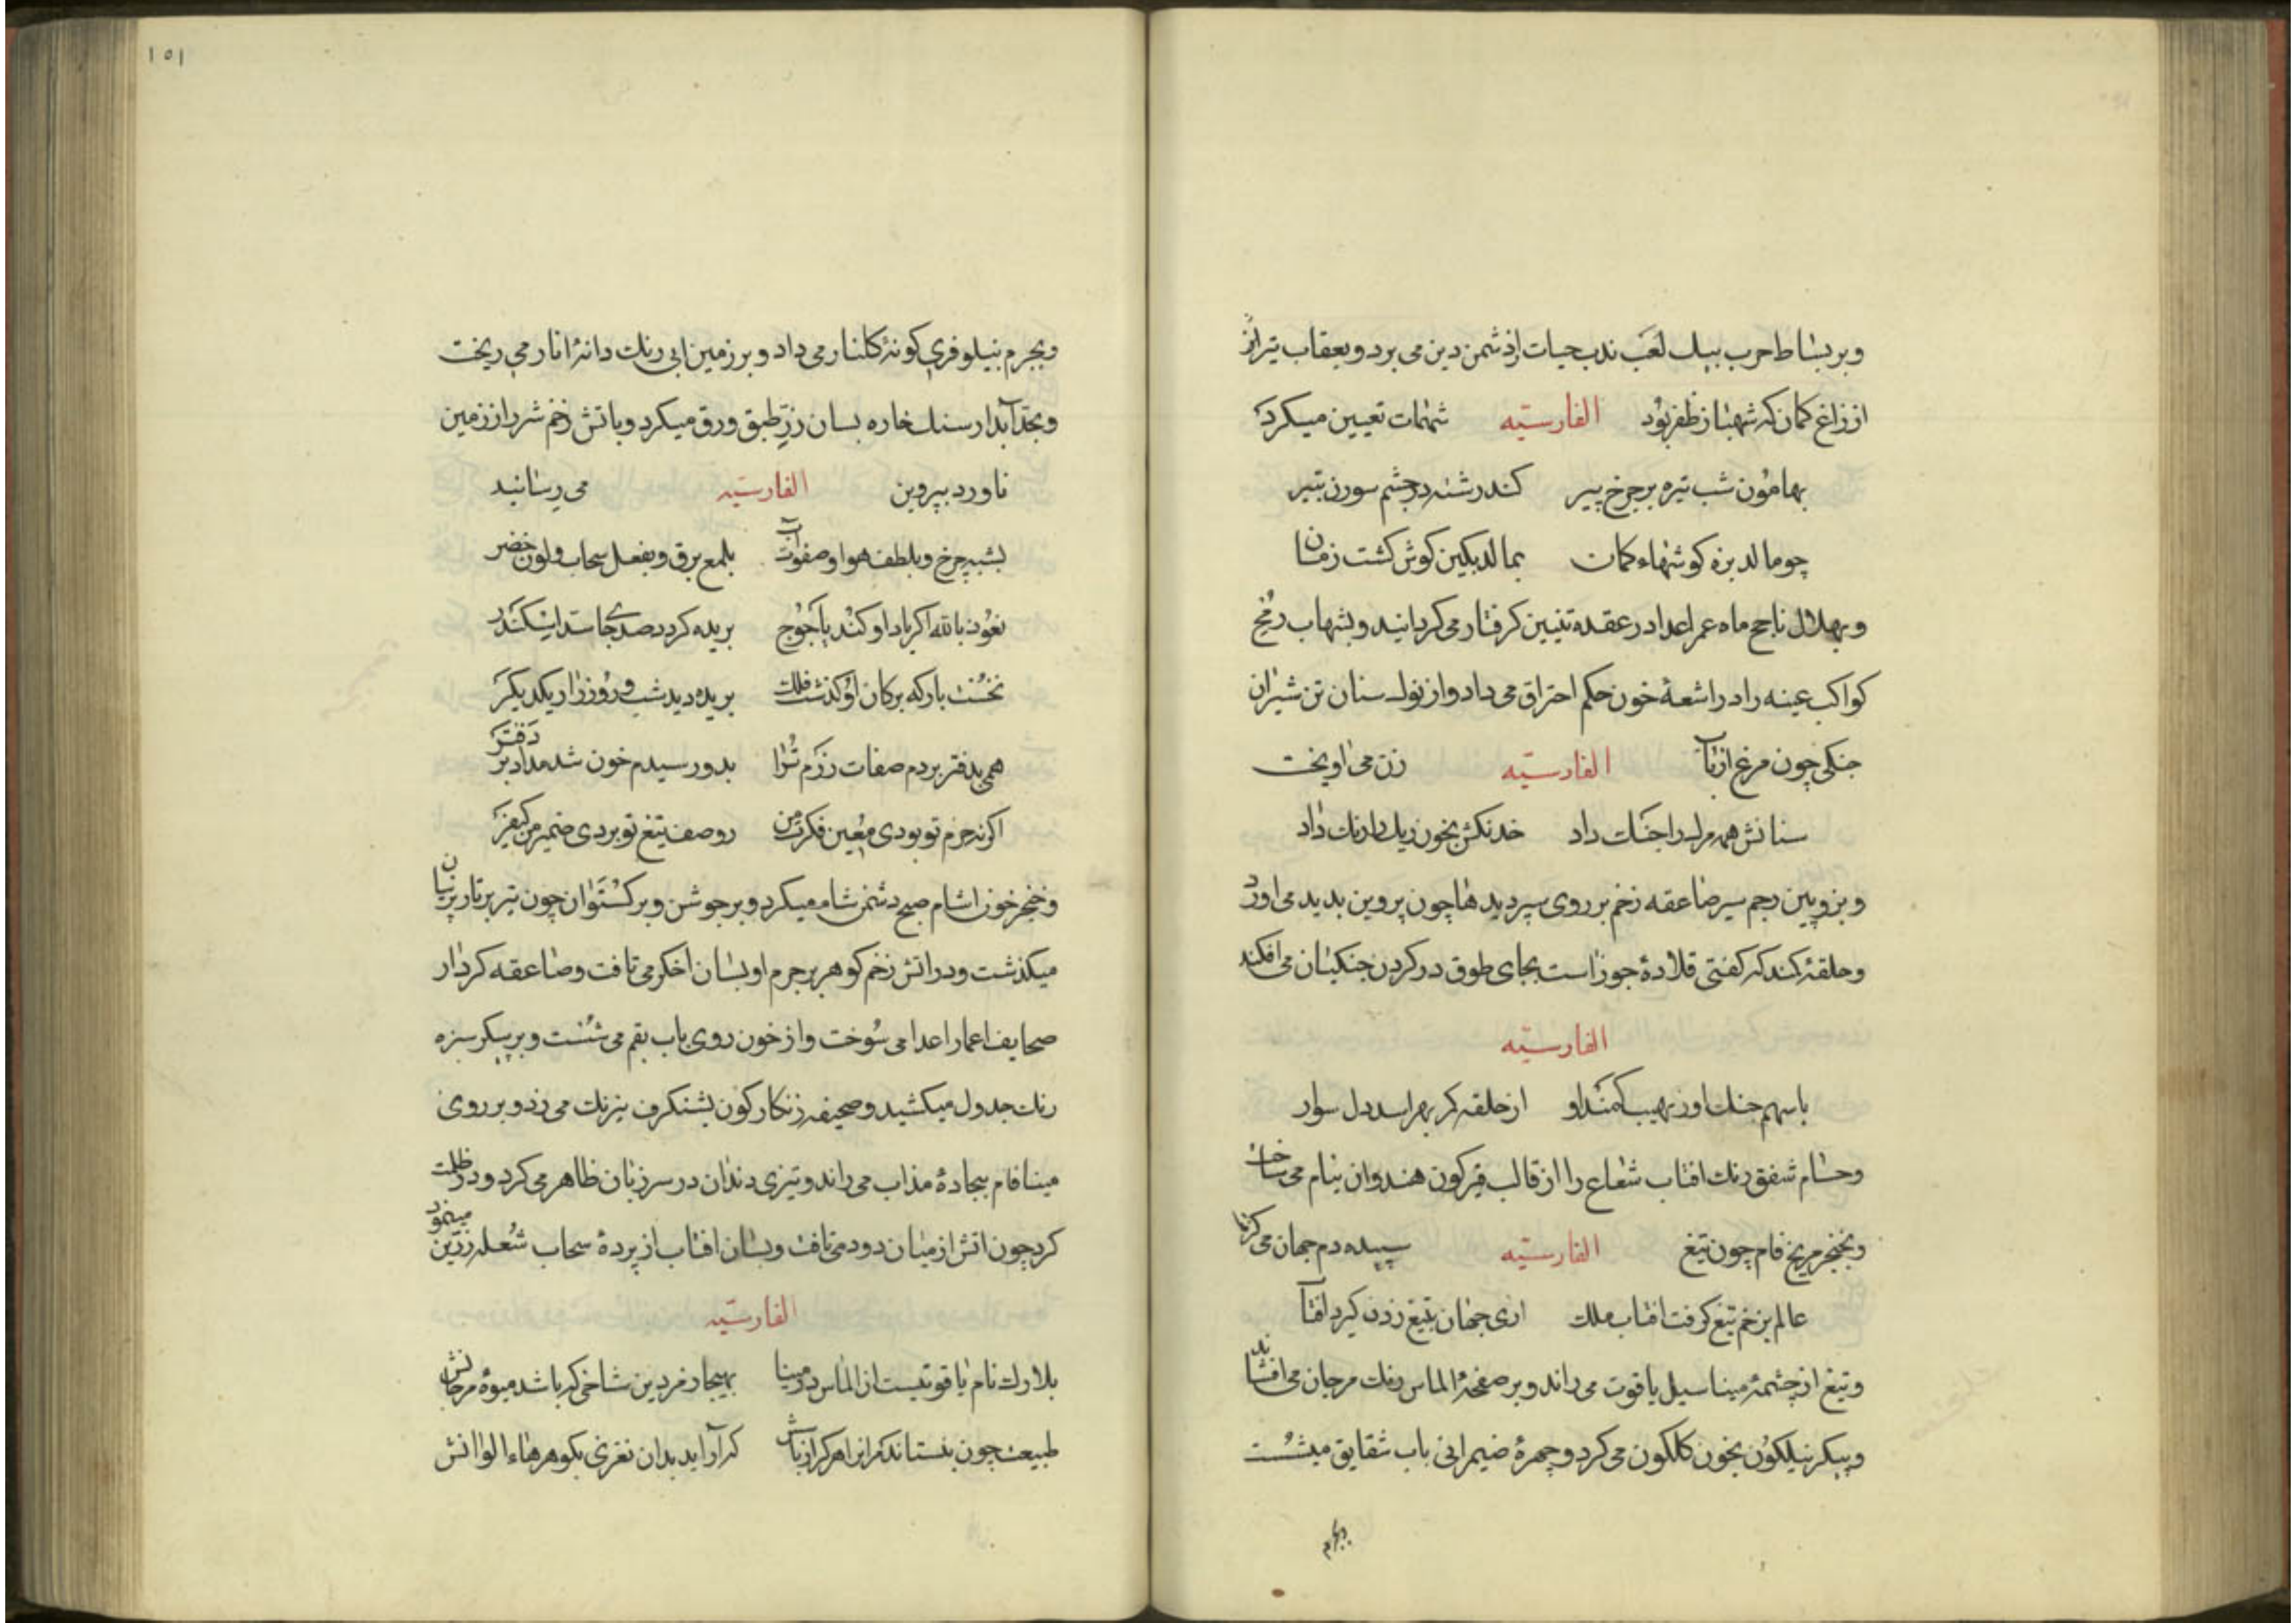 وبر بساط حرب بپیلك لعب ندب حیات از دشمن دین می برد و بعقاب تیر از
از زاغ کمان که شهباز ظفر بود الفارسیّه شهمات تعیین میکرد
بهامون شب تیره بر چرخ پیر کند رشته در چشم سوزن بتیر
چو مالد بزه کوشهاء کمان بمالد بکین کوش کشت زمان
وبهلال ناجح ماه عمر اعدا در عقده تنین کرفتار می کردانید و بشهاب رمح
کواکب عینه را در اشعهٔ خون حکم احتراق می داد و از نوك سنان تن شیران
جنکی چون مرغ از باب الفارسیّه زن می اویخت
سنانش همه مرك را جنك داد خدنکش بخون ریك را رنك داد
و بزوبین رجم سیر صاعقه زخم بر روی سپر دیدها چون پروین بدید می اورد
وحلقهٔ کمند که کفتی قلادهٔ جوزاست بجای طوق در کردن جنکیان می افکند
الفارسیّه
با سهم جنك او ز نهیب کمند او از حلقه کر بهراسد دل سوار
وحسام شفق رنك افتاب شعاع را از قالب قیرکون هندوان نیام می ساخت
وبخنجر مریخ فام چون تیغ الفارسیّه سپیده دم جهان می کرفت
عالم بزخم تیغ کرفت افتاب ملك اری جهان بتیغ زدن کیرد افتاب
وتیغ از چشمهٔ مینا سیل یاقوت می راند و بر صفحهٔ الماس رنك مرجان می افشاند
وپیکر نیلکون بخون کلکون می کرد و چهرهٔ ضیمرانی باب شقایق میشست
وبجرم
١٥١
وبجرم نیلوفری کونهٔ کلنار می داد و بر زمین ابی رنك دانهٔ انار می ریخت
وبحد آبدار سنك خاره بسان زر طبق ورق میکرد و باتش زخم شرر از زمین
ناورد بپروین الفارسیّه می رسانید
بشبه چرخ و بلطف هوا و صفوت آب بلمع برق و بفعل سحاب و لون خضر
نعوذ بالله اکر یاد او کند یاجوج بریده کردد صد جا سد اسکندر
نخست بار که بر کان او کذشت فلك بریده دید شب و روز را ز یکدیکر
همی بدفتر بردم صفات رزم ترا بدو رسیدم خون شد مداد بر دفتر
اکر نه جزم تو بودی معین فکرت من ز وصف تیغ تو بردی ضمیر من کیفر
وخنجر خون اشام صبح دشمن شام میکرد و بر جوشن و برکستوان چون تیر بر تار پرنیان
میکذشت و در اتش زخم کوهر بر جرم او بسان اخکر می تافت و صاعقه کردار
صحایف اعمار اعدا می سوخت و از خون روی باب بقم می شست و بر پیکر سبزه
رنك جدول میکشید و صحیفهٔ زنکارکون بشنکرف نیرنك می زد و بر روی
مینا فام بیجادهٔ مذاب می راند و تیزی دندان در سر زبان ظاهر می کرد و در ظلمت
کرد چون اتش از میان دود می تافت و بسان افتاب از پردهٔ سحاب شعله زرین مینمود
الفارسیّه
بلارك نام یاقوتیست از الماس در مینا بهیجا زمردین شاخی که باشد میوهٔ مرجانش
طبیعت چون که آراید بدان نغزی بکوهرهاء الوانش